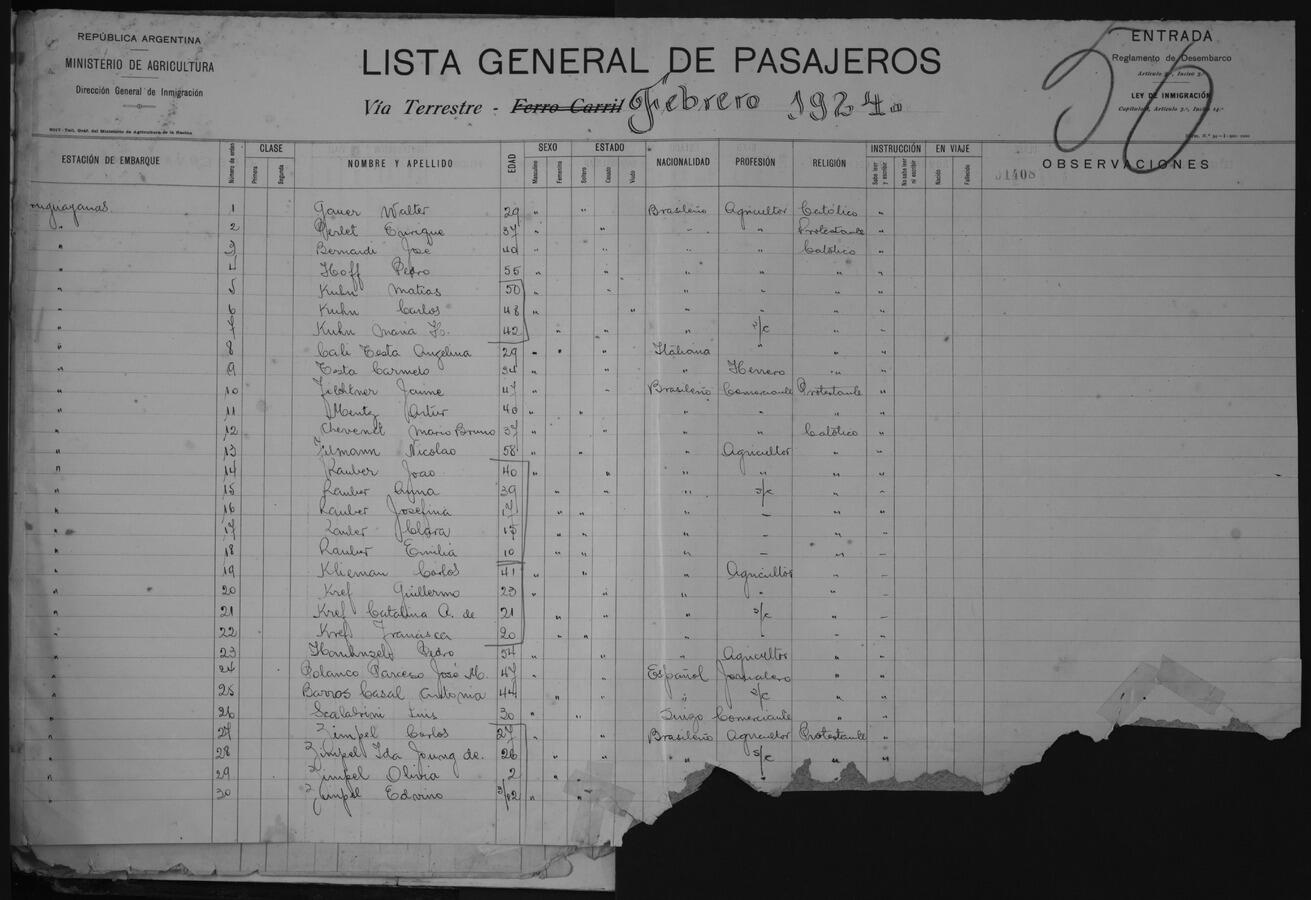 REPÚBLICA ARGENTINA
MINISTERIO DE AGRICULTURA
Dirección General de Inmigración
LISTA GENERAL DE PASAJEROS
Vía Terrestre - Ferro Carril Febrero 1924
56
ENTRADA
Reglamento de Desembarco
LEY DE INMIGRACIÓN
ESTACIÓN DE EMBARQUE Número de orden CLASE Primera Segunda NOMBRE Y APELLIDO EDAD SEXO Masculino Femenino ESTADO Soltero Casado Viudo NACIONALIDAD PROFESIÓN RELIGIÓN INSTRUCCIÓN Sabe leer y escribir No sabe leer ni escribir EN VIAJE Nacido Fallecido OBSERVACIONES
1 Walter 29 " " Brasileño Agricultor Católico "
" 2 Enrique 37 " " " " Protestante "
" 3 Bernardi José 40 " " " " Católico "
" 4 Hoff Pedro 55 " " " " " "
" 5 Kuhn Matias 50 " " " " " "
" 6 Kuhn Carlos 48 " " " " " "
" 7 Kuhn Maria 42 " " " s/c " "
" 8 Cali Testa Angelina 29 " " " Italiana " " "
" 9 Testa Carmelo 34 " " " Herrero " "
" 10 Jaime 47 " " Brasileño Comerciante Protestante "
" 11 Mentz Artur 40 " " " " " "
" 12 Chevenet Mario Bruno 37 " " " " Católico "
" 13 Nicolao 58 " " " Agricultor " "
" 14 Rauber Joao 40 " " " " " "
" 15 Rauber Anna 39 " " " s/c " "
" 16 Rauber Josefina 17 " " " - " "
" 17 Rauber Clara 15 " " " - " "
" 18 Rauber Emilia 10 " " " - " -
" 19 Klieman Carlos 41 " " " Agricultor " -
" 20 Kref Guillermo 23 " " " " " "
" 21 Kref Catalina A. de 21 " " " s/c " "
" 22 Kref Francisca 20 " " " " " "
" 23 Pedro 54 " " " Agricultor " "
" 24 Polanco José M. 47 " " Español Jornalero " "
" 25 Barros Casal Antonia 44 " " " s/c " "
" 26 Scalabrini Luis 30 " " Suizo Comerciante " "
" 27 Zimpel Carlos 27 " " Brasileño Agricultor Protestante "
" 28 Zimpel Ida Joung de 26 " " " s/c " "
" 29 Zimpel Olivia 2 " "
" 30 Zimpel Edvino /12 " "